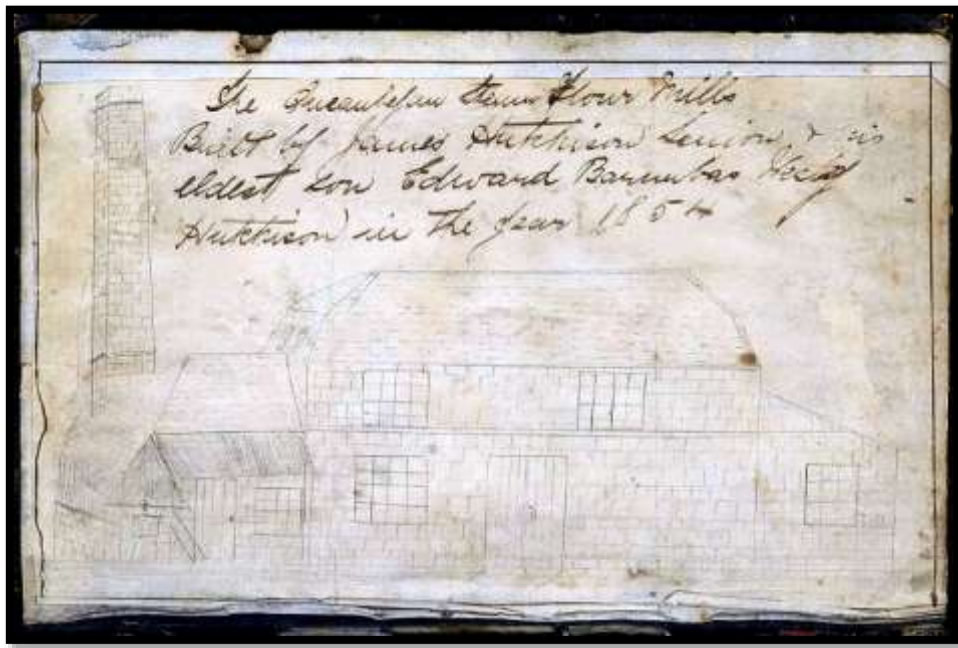 The Queanbeyan Steam Flour Mills
Built by James Hutchison Senior & his
eldest son Edward Barnabas
Hutchison in the year 1854